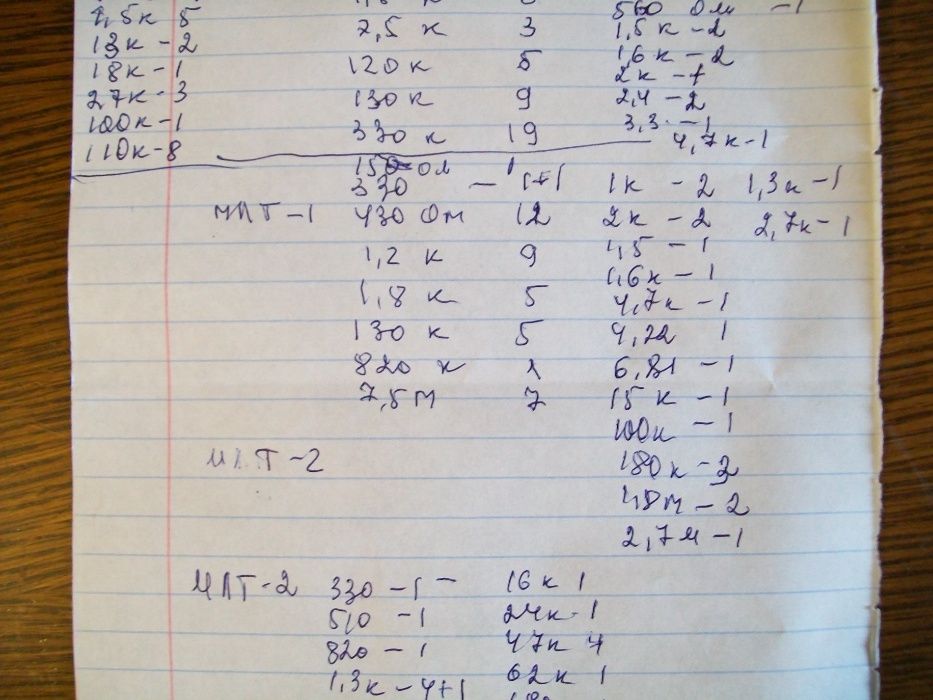 7,5к 5
13к - 2
18к - 1
27к - 3
100к - 1
110к - 8
7,5 к 3
120 к 5
130 к 9
330 к 19
560 Ом - 1
1,5к - 2
1,6к - 2
2к - 1
2,4 - 2
3,3 - 1
4,7к - 1
МЛТ - 1
150 ом
330 - 1+1
430 Ом 12
1,2 к 9
1,8 к 5
130 к 5
820 к 1
7,5м 7
1к - 2 1,3к - 1
2к - 2 2,7к - 1
1,5 - 1
1,6к - 1
4,7к - 1
1
- 1
15 к - 1
100к - 1
180к - 2
1,8м - 2
2,7м - 1
МЛТ - 2
МЛТ - 2
330 - 1 -
510 - 1
820 - 1
1,3к - 4+1
16к 1
24к - 1
47к 4
62к 1